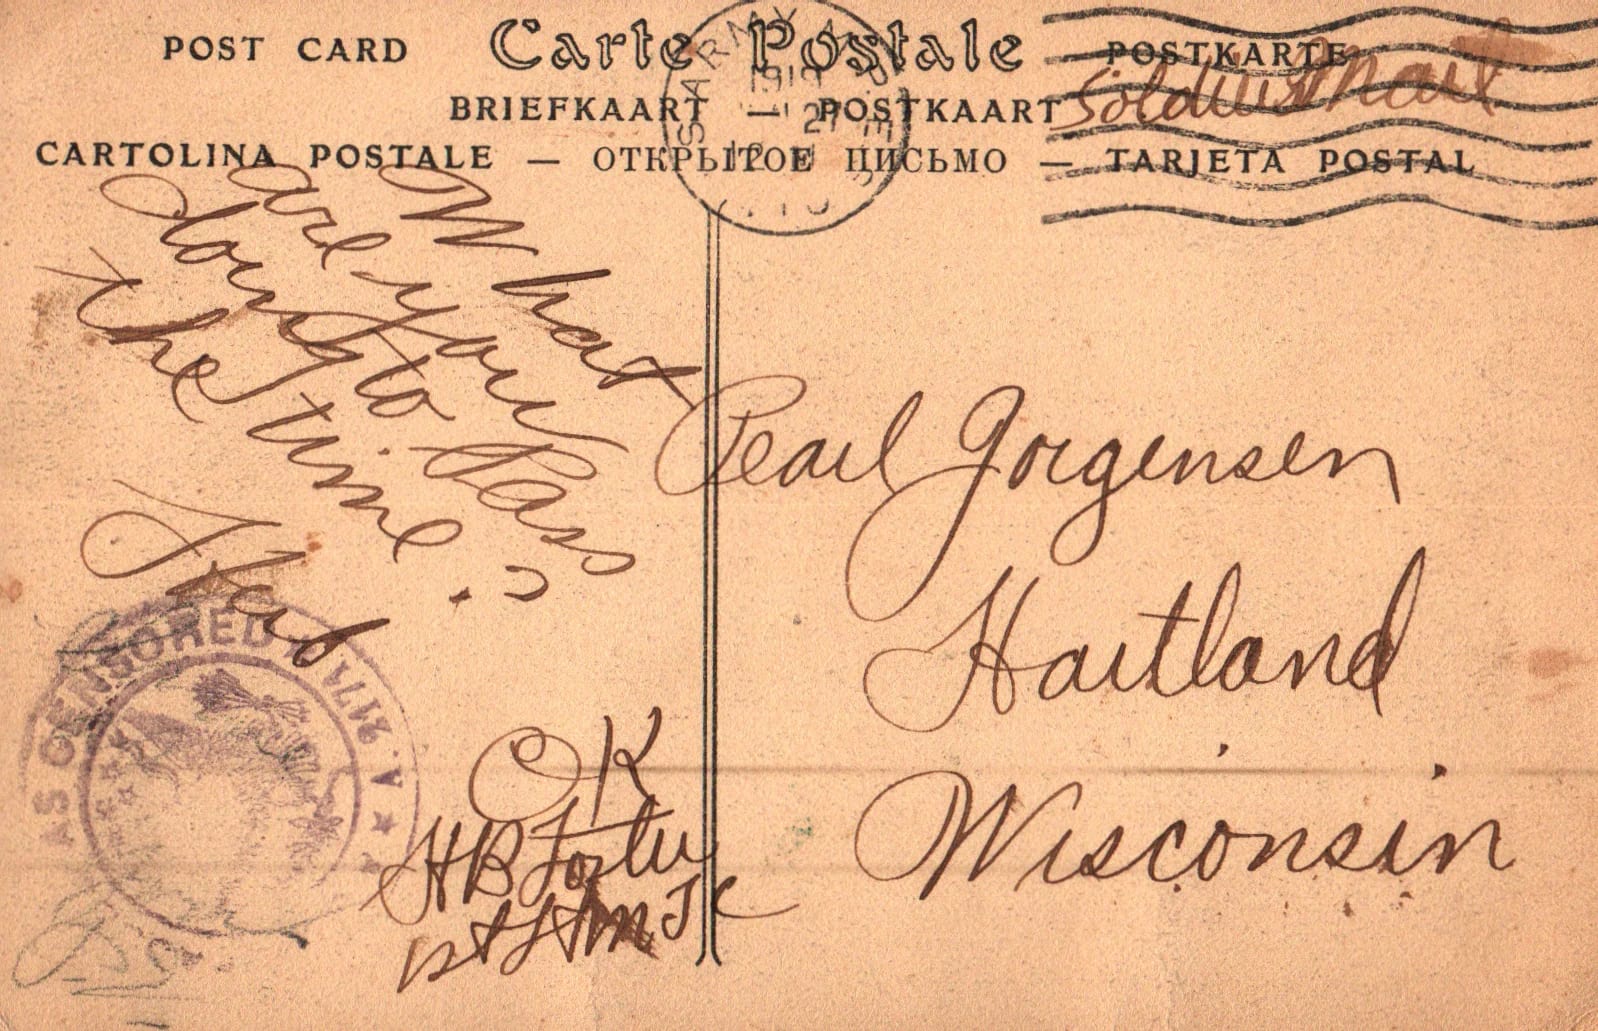 POST CARD Carte Postale POSTKARTE
BRIEFKAART — POSTKAART
CARTOLINA POSTALE — ОТКРЫТОЕ ПИСЬМО — TARJETA POSTAL
Soldiers Mail
What
are you
doing to Pass
the time?
Herb
Pearl Jorgensen
Hartland
Wisconsin
OK
HB Foster
1st Lt
AS CENSORED A.2171